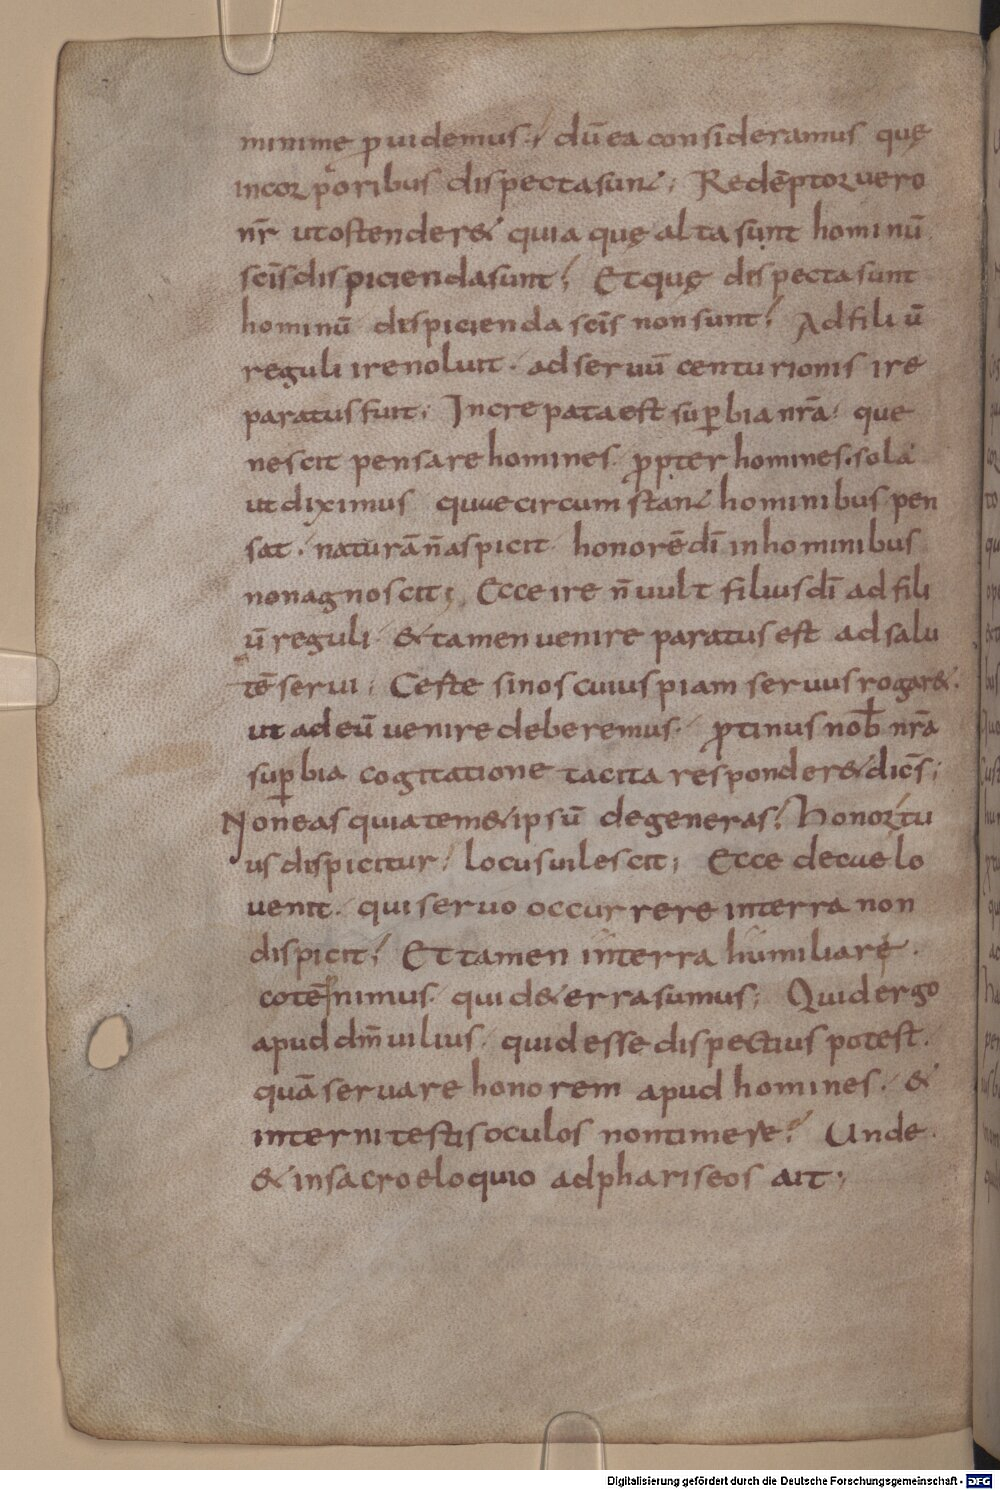 minimę ꝓuidemus· dū ea consideramus quę
incorporibus dispecta sunt; Redēptor uero
nr̄ ut ostenderet quia quę alta sunt hominū
sc̄is dispicienda sunt; Et quę dispecta sunt
hominū dispicienda sc̄is non sunt; Ad filiū
reguli ire noluit· ad seruū centurionis ire
paratus fuit; Increpata est sup̄bia nr̄a· que
nescit pensare homines ꝓpter homines· sola
ut diximus que circumstant hominibus pen
sat· naturā n̄ aspicit honorē dī in hominibus
non agnoscit; Ecce ire n̄ uult filius dī ad fili
ū reguli· & tamen uenire paratus est ad salu
tē serui; Certe si nos cuiuspiam seruus rogaret·
ut ad eū uenire deberemus· ꝓtinus nob̄ nr̄a
sup̄bia cogitatione tacita responderet dicēs;
Non eas quia temetipsū degeneras; Honor tu
us dispicitur· locus uilescit; Ecce de cuelo
uenit· qui seruo occurrere in terra non
dispicit; Et tamen in terra humiliarę·
cotēnimus· qui de terra sumus; Quid ergo
apud dm̄ uilius· quid esse dispectius potest·
quā seruare honorem apud homines· &
interni testis oculos non timere? Unde·
& in sacro eloquio ad phariseos ait;
Digitalisierung gefördert durch die Deutsche Forschungsgemeinschaft - DFG